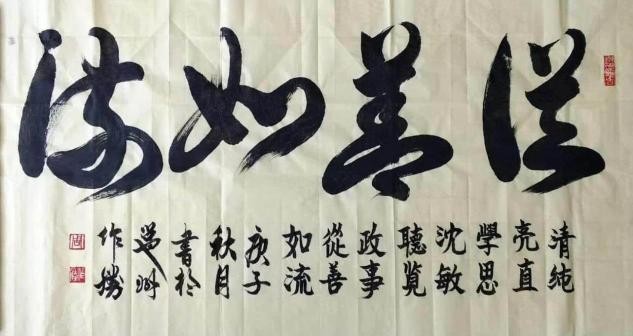 從善如流
清純
亮直
學思
沈敏
聽覧
政事
從善
如流
庚子
秋月
書於
作勝